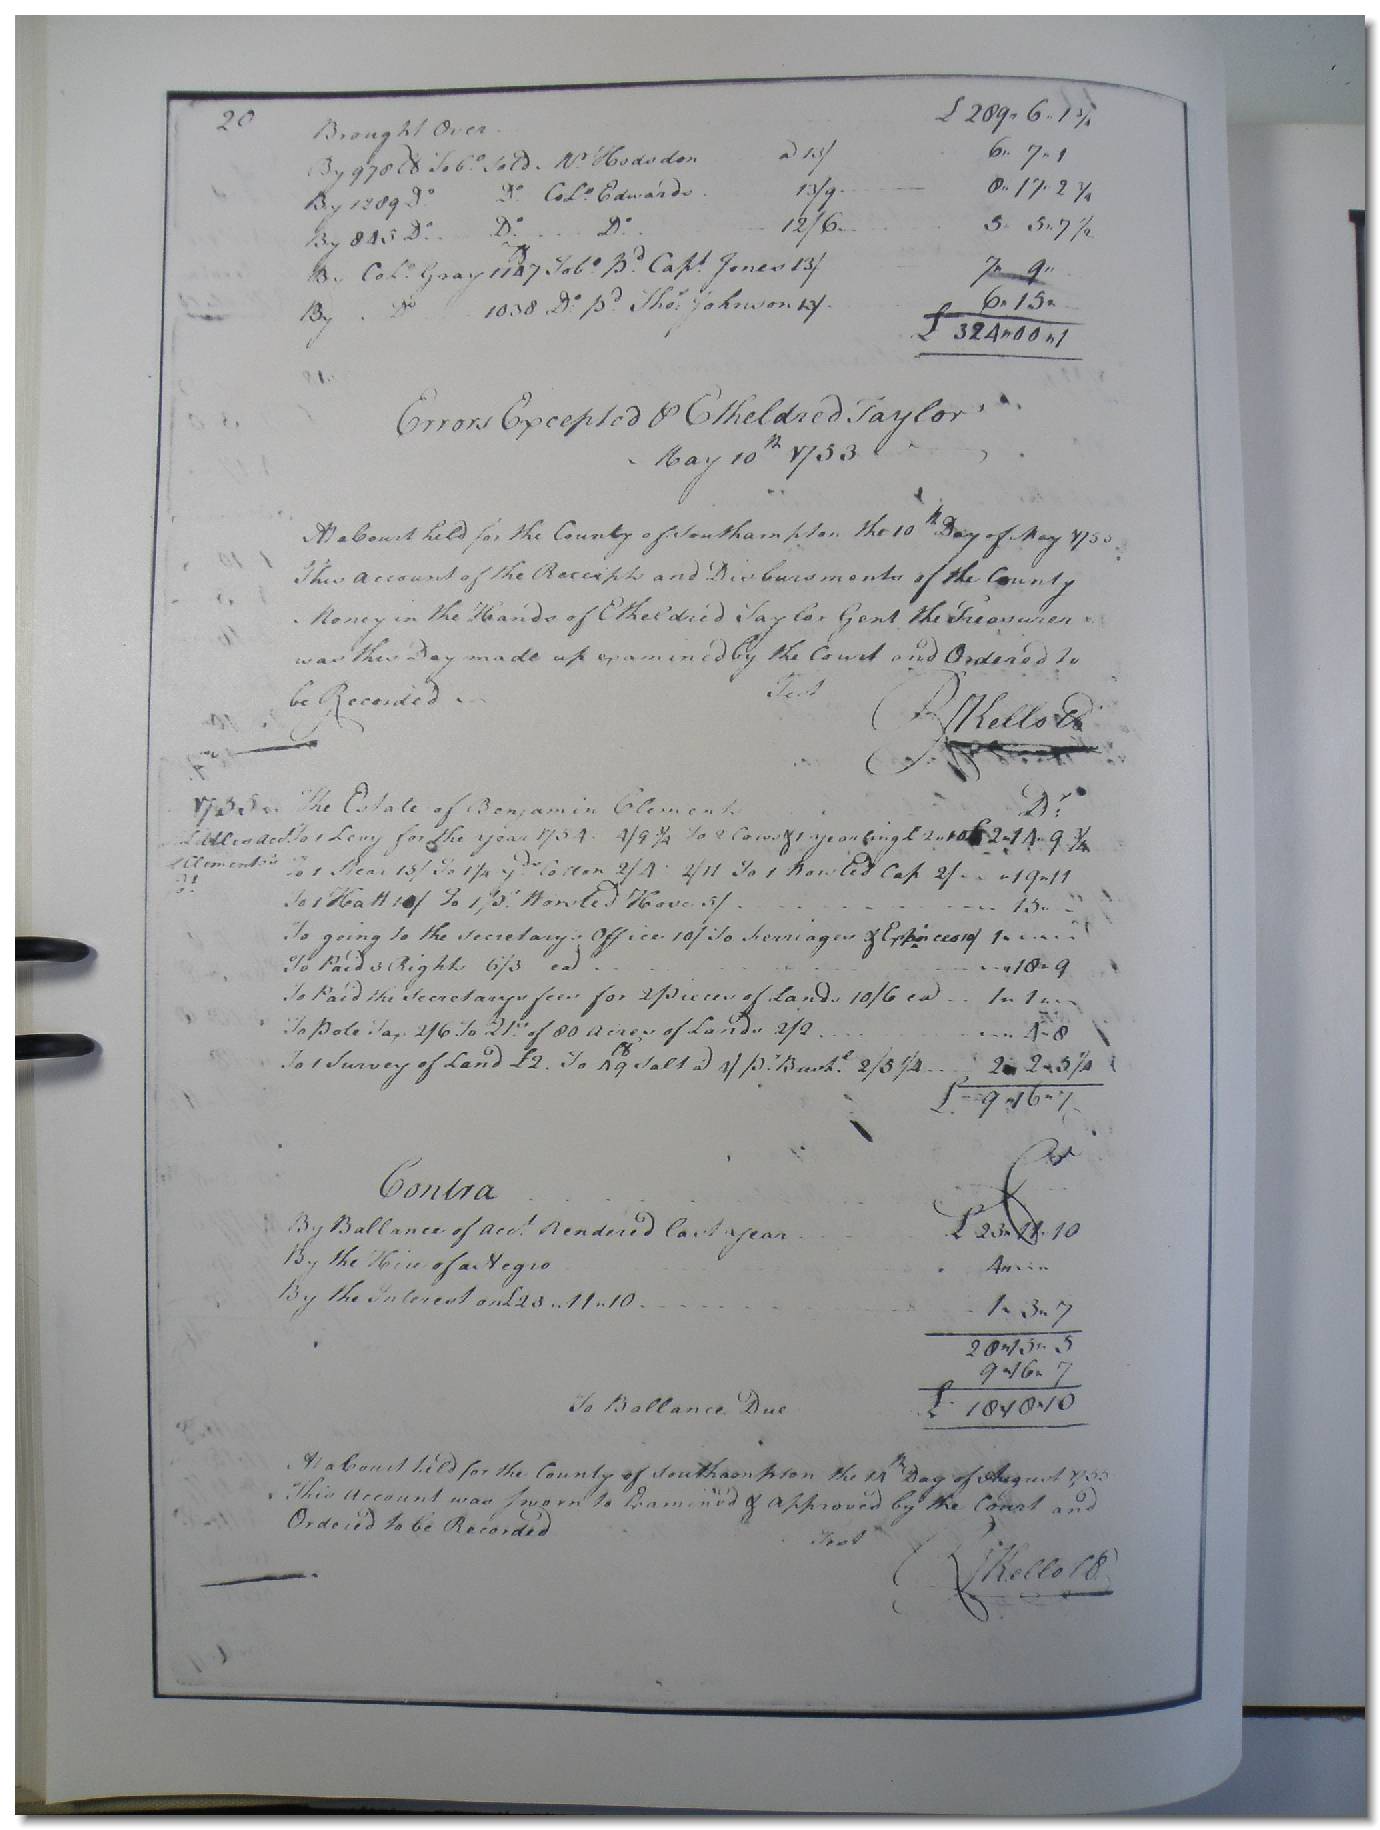 20
Brought Over £289" 6" 1 3/4
By 978 lb Tobo. Sold. Wm. Hodsdon a 13/ 6" 7" 1
By 1289 Do. Do. Colo. Edwards 13/9 8" 17" 2 3/4
By 845 Do. Do. Do. 12/6 5" 5" 7 1/2
By Colo. Gray 1147 Tobo. pd. Capt. Jones 13/ 7" 9"
By Do. 1038 Do. pd. Thos. Johnson 13/ 6" 15"
£ 324"00"1
Errors Excepted Etheldred Taylor
May 10th 1753
At a Court held for the County of Southampton the 10th Day of May 1755
This Account of the Receipts and Disbursments of the County
Money in the Hands of Etheldred Taylor Gent the Treasurer
was this Day made up examined by the Court and Ordered to
be Recorded
Test
R Kello Cl
1755 The Estate of Benjamin Clements Dr.
Clements's To 1 Levy for the year 1754 4/9 3/4 To 2 Cows & 1 yearling £2"10 £2"14"9 3/4
To 1 Steer 15/ To 1 1/4 yds. Cotton 2/4 2/11 To 1 Worsted Cap 2/ "19"11
To 1 Hatt 10/ To 1 pr. Worsted Hose 5/ 15"
To going to the Secretarys Office 10/ To Ferriages & Expences 10/ 1"
To Paid 3 Rights 6/3 ed "18"9
To Paid the Secretarys fees for 2 Pieces of Lands 10/6 ed 1" 1"
To Pole Tax 2/6 To Qts. of 80 Acres of Lands 2/2 4"8
To 1 Survey of Land £2. To Salt a 1/ pr. Bushl. 2/5 1/4 2" 2"5 1/4
£ 9"16"7
Contra Cr
By Ballance of Acct. Rendered last year £ 23"11"10
By the Hire of a Negro 4"
By the Interest on £23"11"10 1" 3" 7
28"15" 5
9"16" 7
To Ballance Due £ 18"18"10
At a Court held for the County of Southampton the 14th Day of August 1755
This Account was sworn to Examined & approved by the Court and
Ordered to be Recorded
Test
R Kello Cl